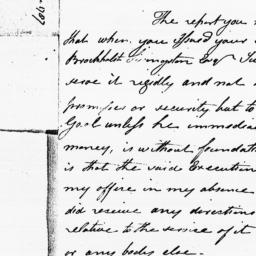 The report you
that when you issued your
Brockholst Livingston Esqr
serve it rigidly and not
promises or security but to
Goal unless he immediat
money, is without foundatio
is that the said Execution
my office in my absence
did receive any directions
relative to the service of it
or any bodys else.